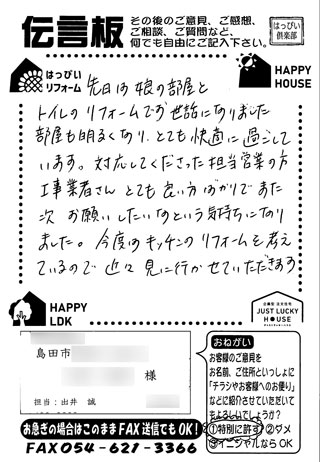 伝言板
その後のご意見、ご感想、
ご相談、ご質問など、
何でも自由にご記入下さい。
はっぴい
倶楽部
はっぴい
リフォーム
HAPPY
HOUSE
先日は娘の部屋と
トイレのリフォームでお世話になりました
部屋も明るくなり、とても快適に過ごして
います。対応してくださった担当営業の方
工事業者さん とても良い方ばかりでまた
次 お願いしたいなという気持ちになり
ました。今度はキッチンのリフォームを考え
ているので 近々 見に行かせていただきます
HAPPY
LDK
JUST LUCKY
HOUSE
島田市
様
担当：出井 誠
おねがい
お客様のご意見を
お名前、ご住所といっしょに
「チラシやお客様へのお便り」
などに紹介させていただいて
もよろしいでしょうか？
①特別に許す ②ダメ
③イニシャルならOK
お急ぎの場合はこのままFAX送信でもOK！
FAX054-621-3366